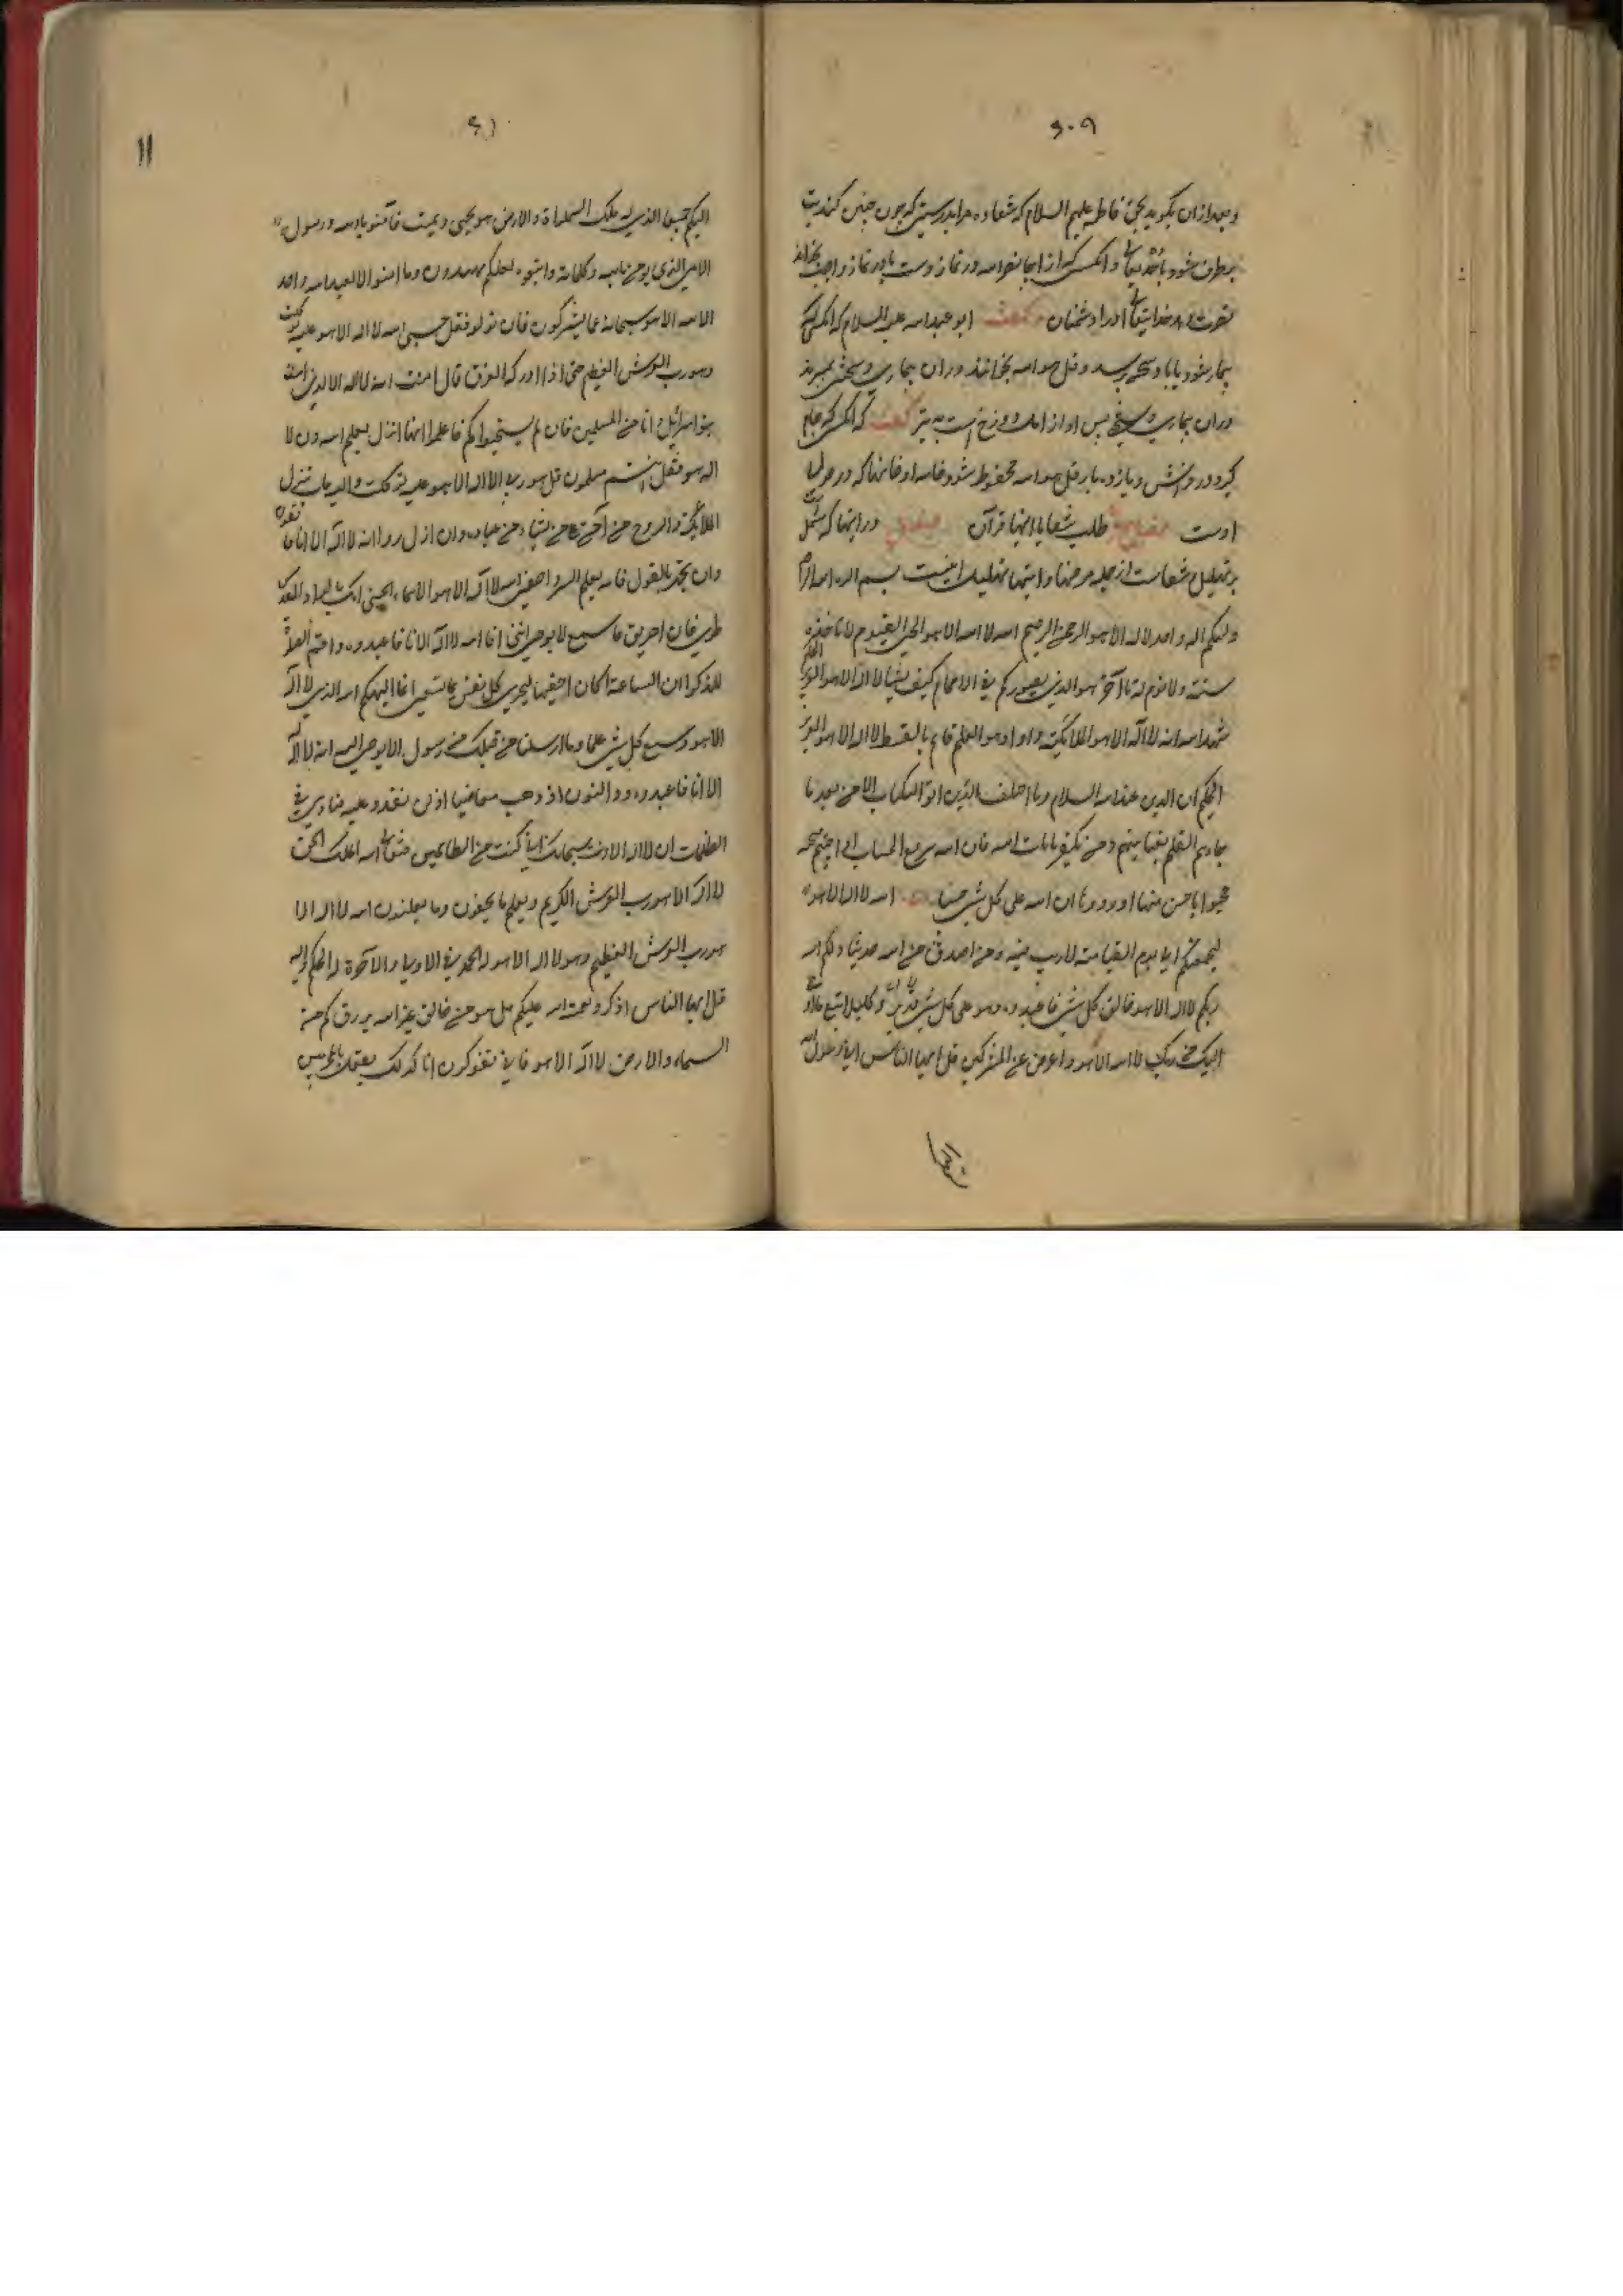 ۶۰۹
وبعد ازان بکوید بحق فاطمه علیهم السلام که شفا ده مرا بدرستیکه چون چنین کند تب
برطرف شود باذن خدایتعالی وانکس که از ایجا بنصرالله در نماز
نصرت دهد خدایتعالی او را دشمنان وکفت ابو عبدالله علیه السلام که انکس که
بیمار شود یا باو سختی برسد وقل هوالله بخواند در ان بیماری وسختی بمیرد
در ان بیماری وسختی پس او از اهل دوزخ است کفت که انکس که جای
کیرد در فراش ویازده بار قل هوالله محفوظ شود خانه او وخانهاکه در حوالی
اوست طلب شفا بایتهای قرآن در ایتهاکه مشتمل
بر تهلیل شفاست از جمله مرضها وایتهای تهلیل اینست بسم الله الرحمن الرحیم
والهکم اله واحد لا اله الا هو الرحمن الرحیم الله لا اله الا هو الحی القیوم لا تاخذه
سنة ولا نوم له تا آخر هو الذی یصورکم فی الارحام کیف یشا لا اله الا هو العزیز الحکیم
شهد الله انه لا اله الا هو والملائکة واولو العلم قایم بالقسط لا اله الا هو العزیز
الحکیم ان الدین عند الله السلام وما اختلف الذین اوتو الکتاب الا من بعد ما
جاءهم العلم بغیا بینهم ومن یکفر بایات الله فان الله سریع الحساب اذا حییتم بتحیة
فحیوا باحسن منها او ردوها ان الله علی کل شی حسیبا الله لا اله الا هو
لیجمعنکم الی یوم القیامة لا ریب فیه ومن اصدق من الله حدیثا ذلکم الله
ربکم لا اله الا هو خالق کل شی فاعبدوه وهو علی کل شی وکیل اتبع ما اوحی
الیک من ربک لا اله الا هو واعرض عن المشرکین قل ایها الناس انی رسول الله
۶۱
۱۱
الیکم جمیعا الذی له ملک السموات والارض هو یحیی ویمیت فآمنو بالله ورسوله
الامی الذی یومن بالله وکلماته واتبعوه لعلکم تهتدون وما امرو الا لیعبد الله واحد
لا اله الا هو سبحانه عما یشرکون فان تولو فقل حسبی الله لا اله الا هو علیه توکلت
وهو رب العرش العظیم حتی اذا ادرکه الغرق قال امنت انه لا اله الا الذی امنت
بنو اسرائیل وانا من المسلمین فان لم یستجیبوا لکم فاعلموا انما انزل بعلم الله وان لا
اله هو فهل انتم مسلمون قل هو ربی لا اله الا هو علیه توکلت والیه متاب ینزل
الملائکة والروح من آمره علی من یشاء من عباده وان انذروا انه لا اله الا انا فاتقون
وان تجهر بالقول فانه یعلم السر واخفی الله لا اله الا هو له الاسماء الحسنی انک بالواد المقدس
طوی فانا اخترتک فاسمع لما یوحی اننی انا الله لا اله الا انا فاعبدون واقم الصلوة
لذکری ان الساعة اکاد اخفیها لتجزی کل نفس بما تسعی انما الهکم الله الذی لا اله
الا هو وسع کل شی علما وما ارسلنا من قبلک من رسول الا یوحی الیه انه لا اله
الا انا فاعبدون وذو النون اذ ذهب مغاضبا اذ لن نقدر علیه فنادی فی
الظلمات ان لا اله الا انت سبحانک انی کنت من الظالمین فتعالی الله الملک الحق
لا اله الا هو رب العرش الکریم ویعلم ما یخفون وما یعلنون الله لا اله الا
هو رب العرش العظیم وهو لا اله الا هو له الحمد فی الاولی والآخرة له الحکم والیه
قل ایها الناس اذکرو نعمت الله علیکم هل من خالق غیر الله یرزقکم من
السماء والارض لا اله الا هو فانی تؤفکون انا کذلک نفعل بالمجرمین